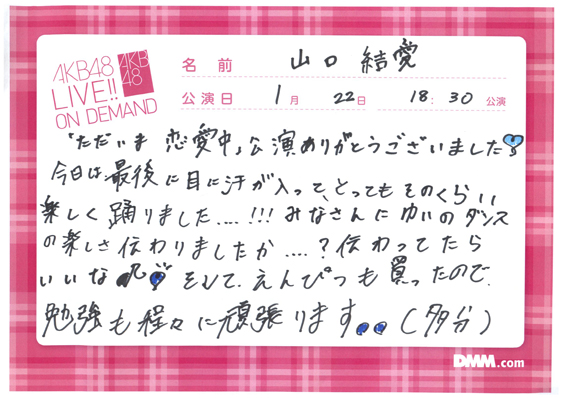 AKB48
LIVE!!
ON DEMAND
AKB
48
名 前 山口 結愛
公演日 1月 22日 18:30 公演
「ただいま 恋愛中」公演ありがとうございました
今日は最後に目に汗が入って、とってもそのくらい
楽しく踊りました....!!! みなさんにゆいのダンス
の楽しさ伝わりましたか....? 伝わってたら
いいな そして、えんぴつも買ったので、
勉強も程々に頑張ります (多分)
DMM.com